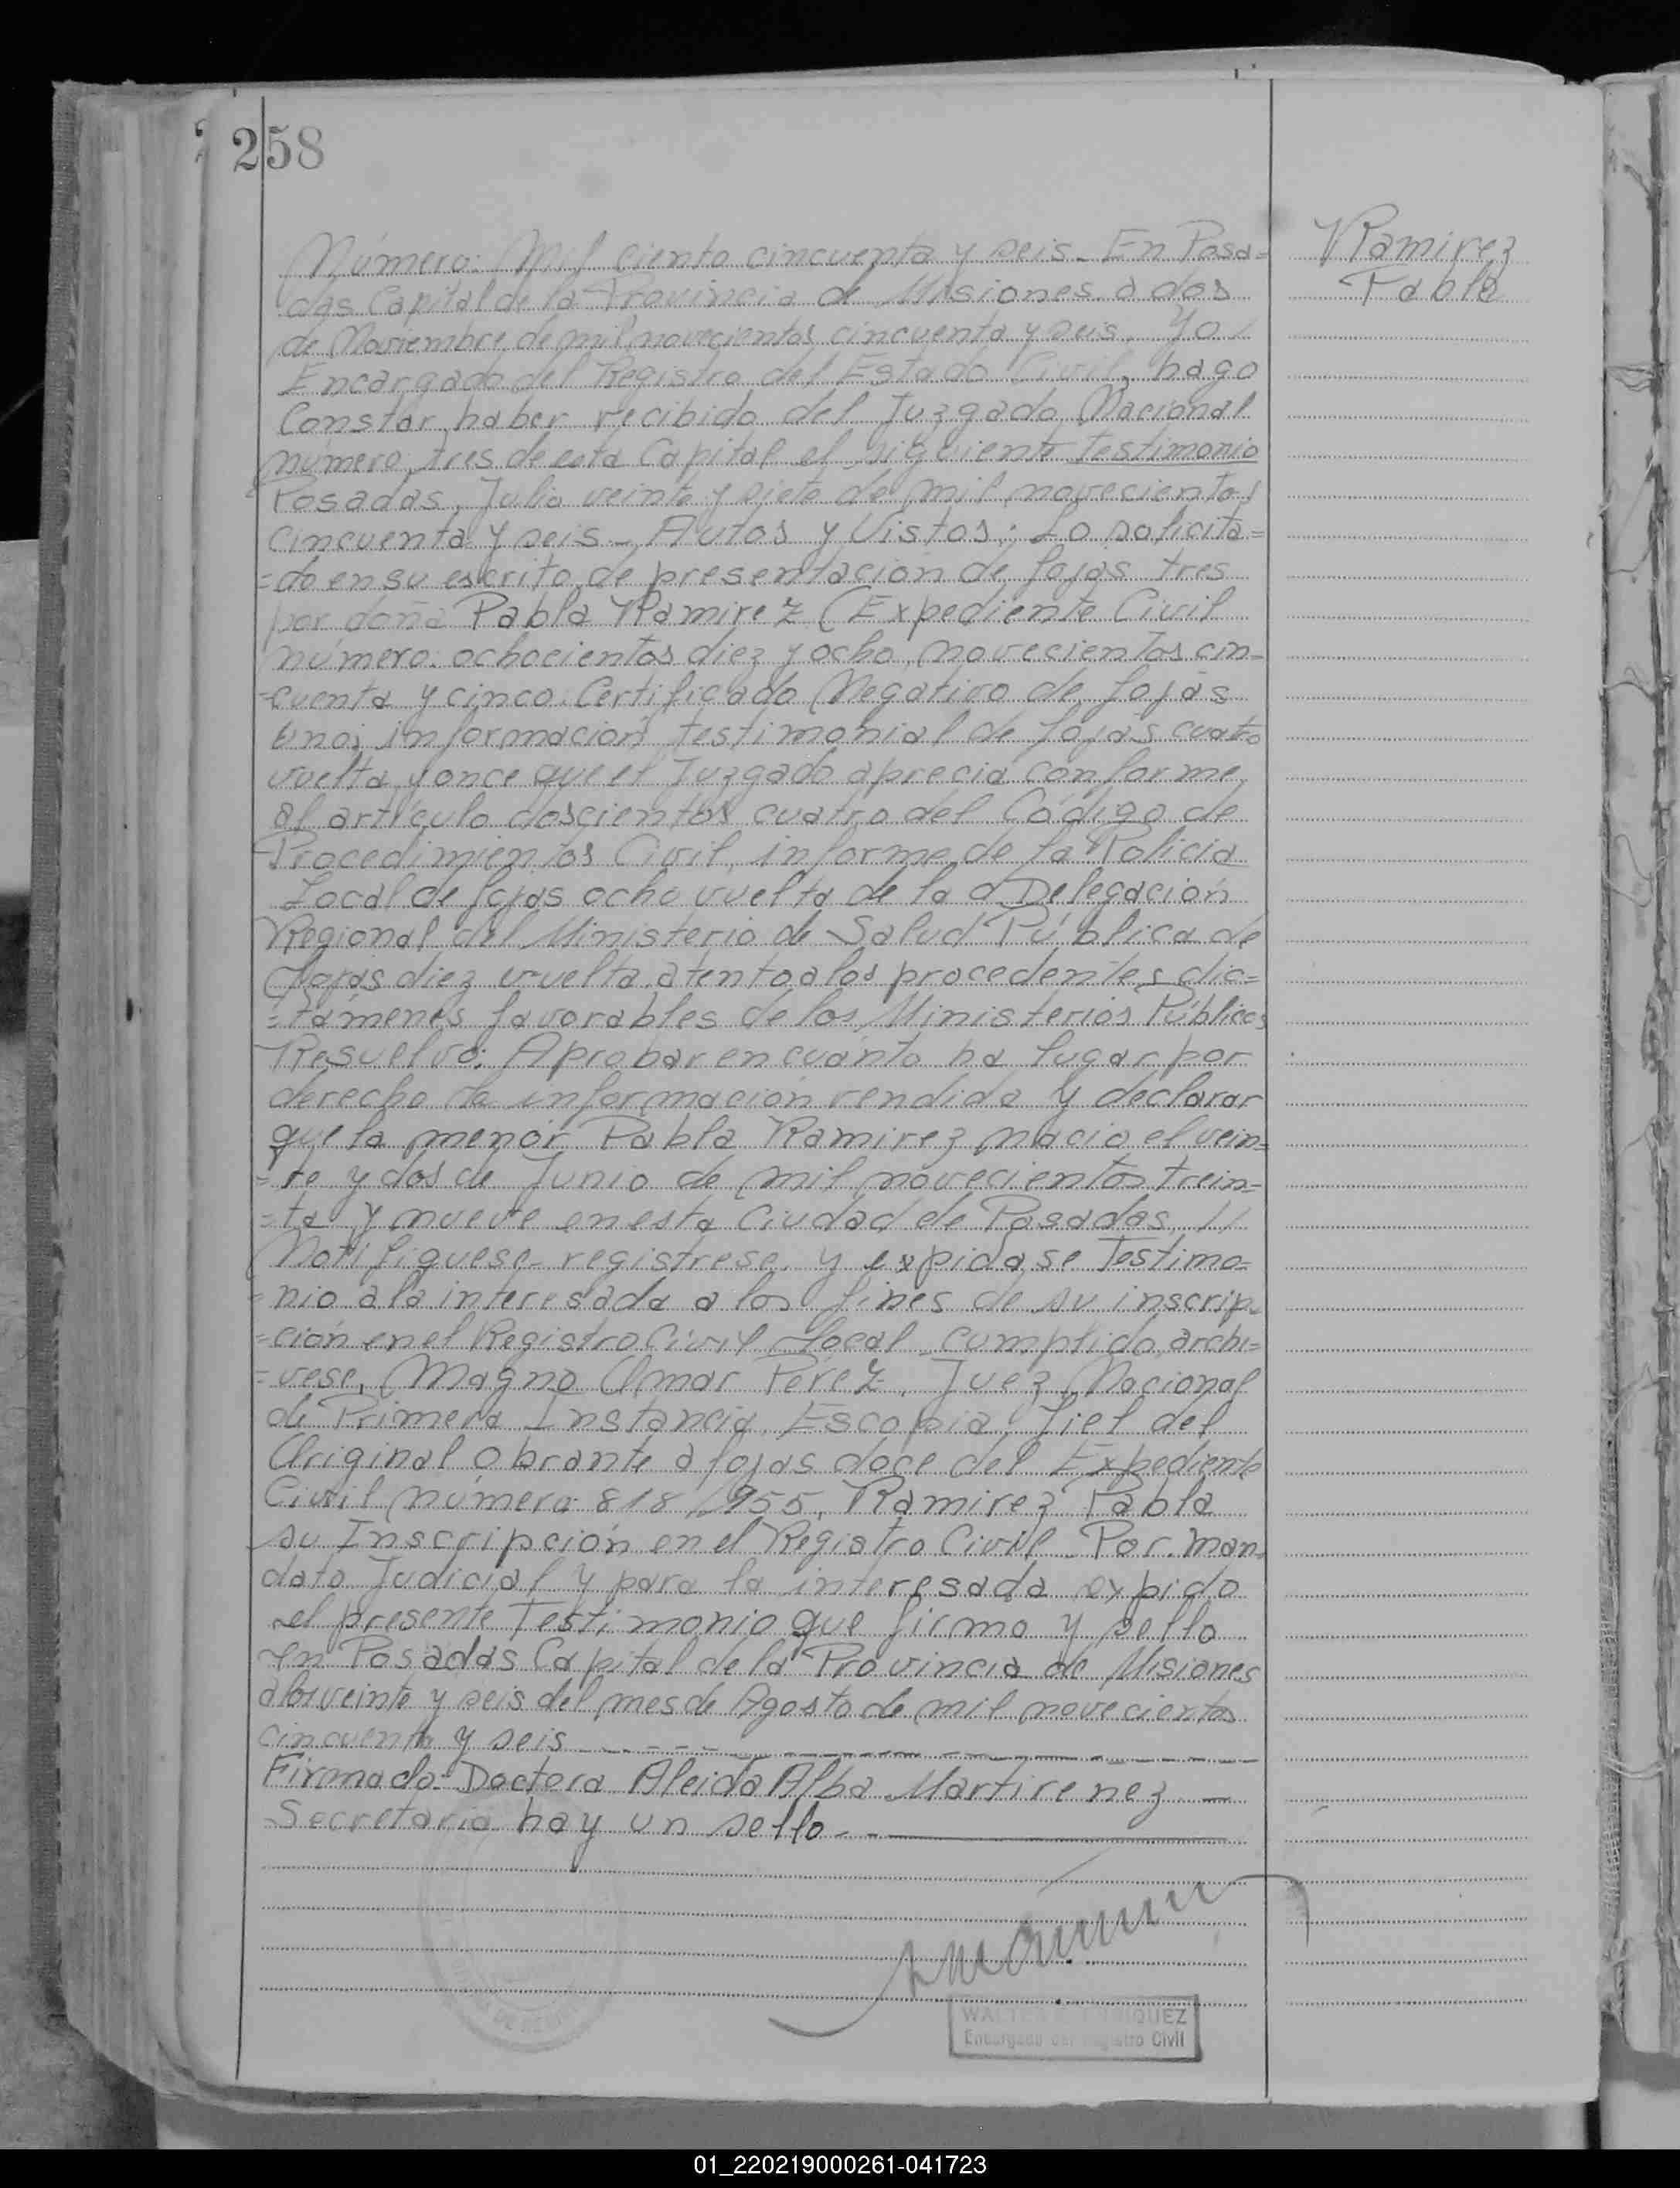 258
Ramirez
Pabla
Número: Mil ciento cincuenta y seis._ En Posa=
das Capital de la Provincia de Misiones a dos
de Noviembre de mil novecientos cincuenta y seis, Yo
Encargado del Registro del Estado Civil, hago
Constar haber recibido del Juzgado Nacional
número tres de esta Capital el siguiente testimonio
Posadas, Julio veinte y siete de mil novecientos
cincuenta y seis._ Autos y Vistos: Lo solicita=
=do en su escrito de presentación de fojas tres
por doña Pabla Ramirez (Expediente Civil
número: ochocientos diez y ocho, novecientos cin-
=cuenta y cinco. Certificado Negativo de fojas
uno; información testimonial de fojas cuatro
vuelta y once que el Juzgado aprecia conforme
al artículo doscientos cuatro del Código de
Procedimientos Civil, informe de la Policia
Local de fojas ocho vuelta de la Delegación
Regional del Ministerio de Salud Pública de
fojas diez vuelta, atento a los procedentes dic=
=támenes favorables de los Ministerios Públicos
Resuelvo: Aprobar en cuánto ha lugar por
derecho la información rendida y declarar
que la menor Pabla Ramirez nacio el vein=
=te y dos de Junio de mil novecientos trein=
=ta y nueve en esta Ciudad de Posadas, //
Notifiquese_ registrese. y expida se Testimo=
=nio a la interesada a los fines de su inscrip-
=ción en el Registro Civil Local_ cumplido, archi=
=vese, Magno Omar Pérez, Juez Nacional
de Primera Instancia, Es copia fiel del
Original obrante a fojas doce del Expediente
Civil número: 818/955, Ramirez Pabla
su Inscripción en el Registro Civil_ Por. man-
dato Judicial y para la interesada expido
el presente Testimonio que firmo y sello
en Posadas Capital de la Provincia de Misiones
a los veinte y seis del mes de Agosto de mil novecientos
cincuenta y seis
Firmado: Doctora Aleida Alba Martirenez _
Secretaria hay un sello_
Encargado del Registro Civil
01_220219000261-041723